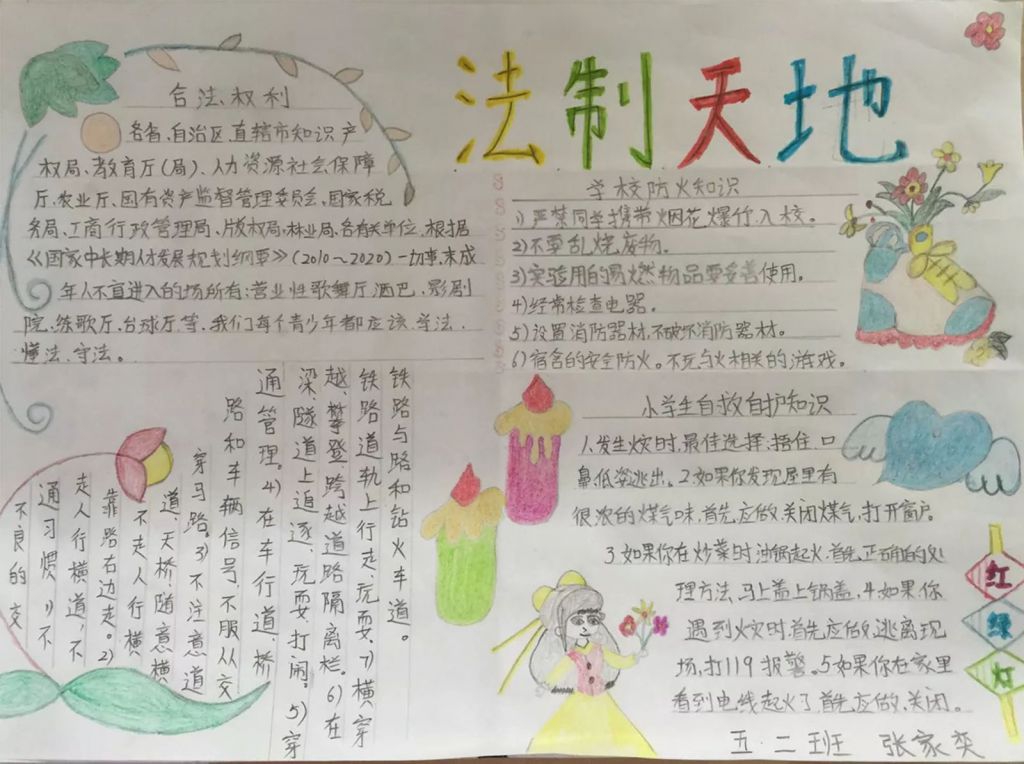 法制天地
合法权利
各省、自治区、直辖市知识产
权局、教育厅(局)、人力资源社会保障
厅、农业厅、国有资产监督管理委员会、国家税
务局、工商行政管理局、版权局、林业局、各有关单位,根据
《国家中长期人才发展规划纲要》(2010~2020)一切事,未成
年人不宜进入的场所有:营业性歌舞厅、酒巴、影剧
院、练歌厅、台球厅等,我们每个青少年都应该,学法、
懂法、守法。
学校防火知识
1)严禁同学携带烟花爆竹入校。
2)不要乱烧废物。
3)实验用的易燃物品要妥善使用。
4)经常检查电器。
5)设置消防器材,不破坏消防器材。
6)宿舍的安全防火。不玩与火相关的游戏。
不良的交
通习惯 1)不
走人行横道,不
靠路右边走。2)
不走人行横
道、天桥,随意横
穿马路。3)不注意道
路和车辆信号,不服从交
通管理。4)在车行道、桥
梁、隧道上追逐、玩耍、打闹。5)穿
越、攀登、跨越道路隔离栏。6)在
铁路道轨上行走、玩耍、7)横穿
铁路与路和钻火车道。
小学生自救自护知识
1.发生火灾时,最佳选择:捂住口
鼻低姿逃出。2.如果你发现屋里有
很浓的煤气味,首先应做,关闭煤气,打开窗户。
3.如果你在炒菜时油锅起火,首先正确的处
理方法,马上盖上锅盖。4.如果你
遇到火灾时首先应做,逃离现
场,打119报警。5.如果你在家里
看到电线起火了,首先应做,关闭。
红
绿
灯
五·二班 张家奕